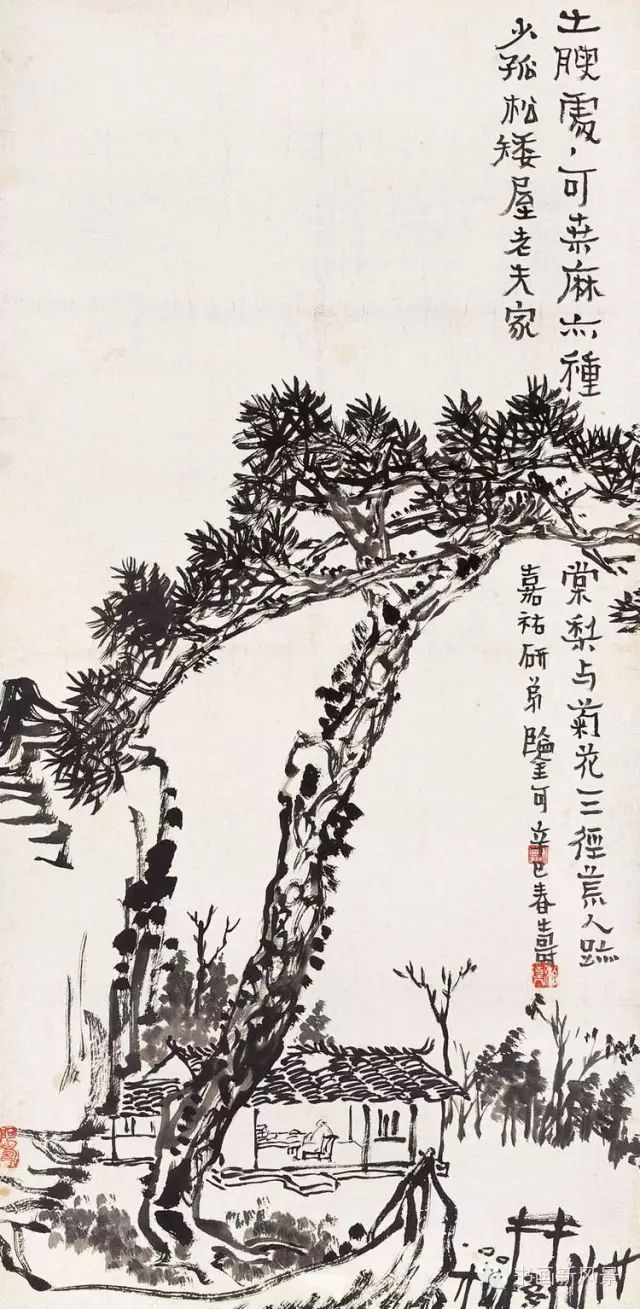 土腴處〻可桒麻亦種
棠梨与菊花三徑荒人跡
少孤松矮屋老夫家
嘉祐研弟鑒可辛巳春壽
书画新风景